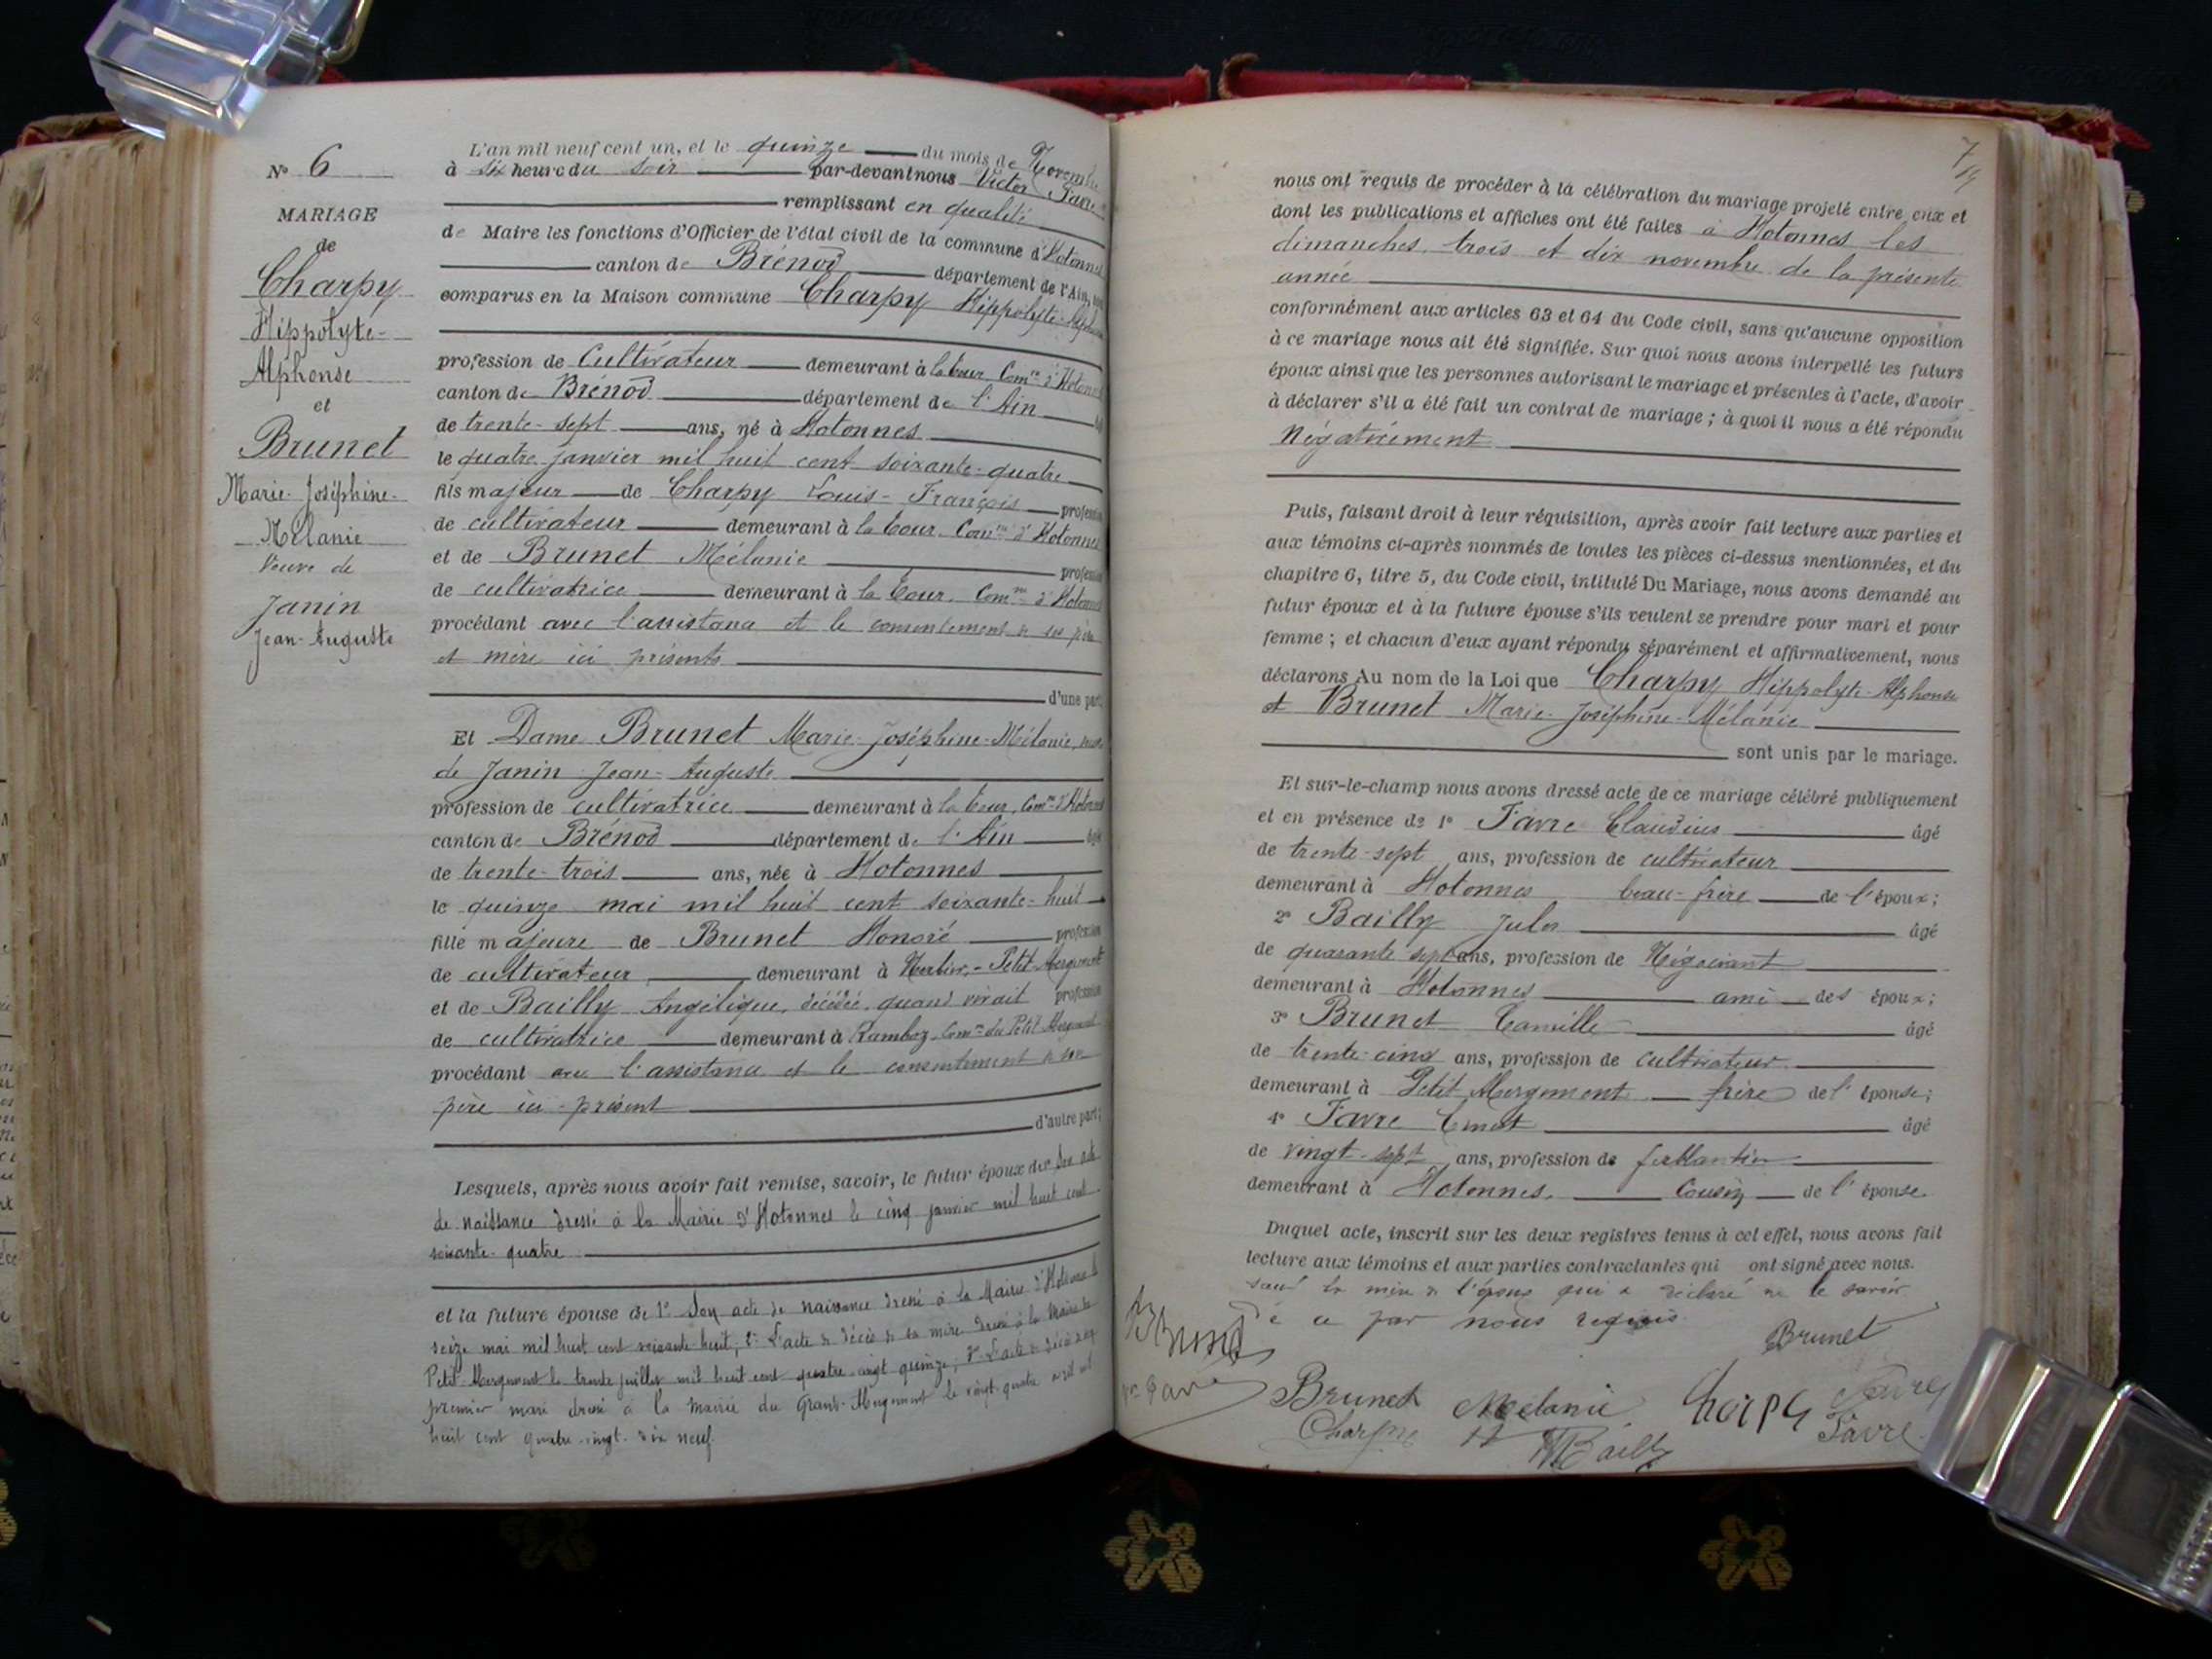 N° 6
MARIAGE
de
Charpy
Hippolyte-
Alphonse
et
Brunet
Marie-Joséphine-
Mélanie
Veuve de
Janin
Jean-Auguste
L'an mil neuf cent un, et le quinze du mois de Novembre
à six heure du soir par-devant nous Victor Favre
remplissant en qualité
de Maire les fonctions d'Officier de l'état civil de la commune d'Hotonnes
canton de Brénod département de l'Ain,
comparus en la Maison commune Charpy Hippolyte-Alphonse
profession de Cultivateur demeurant à la Cour Comne d'Hotonnes
canton de Brénod département de l'Ain
de trente-sept ans, né à Hotonnes
le quatre janvier mil huit cent soixante-quatre
fils majeur de Charpy Louis-François profession
de cultivateur demeurant à la Cour. Comne d'Hotonnes
et de Brunet Mélanie profession
de cultivatrice demeurant à la Cour. Comne d'Hotonnes
procédant avec l'assistance et le consentement de ses père
et mère ici présents
d'une part,
Et Dame Brunet Marie-Joséphine-Mélanie, veuve
de Janin Jean-Auguste
profession de cultivatrice demeurant à la Cour, Comne d'Hotonnes
canton de Brénod département de l'Ain âgée
de trente-trois ans, née à Hotonnes
le quinze mai mil huit cent soixante-huit
fille majeure de Brunet Honoré profession
de cultivateur demeurant à - Petit-Abergement
et de Bailly Angélique, décédée, quand vivait profession
de cultivatrice demeurant à Ramboz, Comne du Petit Abergement
procédant avec l'assistance et le consentement de son
père ici-présent
d'autre part;
Lesquels, après nous avoir fait remise, savoir, le futur époux de son acte
de naissance dressé à la Mairie d'Hotonnes le cinq janvier mil huit cent
soixante-quatre
et la future épouse de 1° Son acte de naissance dressé à la Mairie d'Hotonnes le
seize mai mil huit cent soixante huit; 2° L'acte de décès de sa mère dressé à la Mairie du
Petit Abergement le trente juillet mil huit cent quatre-vingt quinze; 3° L'acte de décès de son
premier mari dressé à la mairie du Grand-Abergement le vingt-quatre avril mil
huit cent quatre-vingt-dix neuf.
7/19
nous ont requis de procéder à la célébration du mariage projeté entre eux et
dont les publications et affiches ont été faites à Hotonnes les
dimanches trois et dix novembre de la présente
année
conformément aux articles 63 et 64 du Code civil, sans qu'aucune opposition
à ce mariage nous ait été signifiée. Sur quoi nous avons interpellé les futurs
époux ainsi que les personnes autorisant le mariage et présentes à l'acte, d'avoir
à déclarer s'il a été fait un contrat de mariage; à quoi il nous a été répondu
Négativement
Puis, faisant droit à leur réquisition, après avoir fait lecture aux parties et
aux témoins ci-après nommés de toutes les pièces ci-dessus mentionnées, et du
chapitre 6, titre 5, du Code civil, intitulé Du Mariage, nous avons demandé au
futur époux et à la future épouse s'ils veulent se prendre pour mari et pour
femme; et chacun d'eux ayant répondu séparément et affirmativement, nous
déclarons Au nom de la Loi que Charpy Hippolyte-Alphonse
et Brunet Marie-Joséphine-Mélanie
sont unis par le mariage.
Et sur-le-champ nous avons dressé acte de ce mariage célébré publiquement
et en présence de 1° Favre Claudius âgé
de trente-sept ans, profession de cultivateur
demeurant à Hotonnes beau-frère de l'époux;
2° Bailly Jules âgé
de quarante sept ans, profession de Négociant
demeurant à Hotonnes ami des époux;
3° Brunet Camille âgé
de trente-cinq ans, profession de cultivateur
demeurant à Petit Abergement frère de l'épouse;
4° Favre Ernest âgé
de vingt-sept ans, profession de ferblantier
demeurant à Hotonnes. Cousin de l'épouse.
Duquel acte, inscrit sur les deux registres tenus à cet effet, nous avons fait
lecture aux témoins et aux parties contractantes qui ont signé avec nous.
sauf la mère de l'époux qui a déclaré ne le savoir
de ce par nous requis.
Brunet
Brunet
Favre
Brunet Mélanie Charpy Favre
Charpy H Bailly Favre